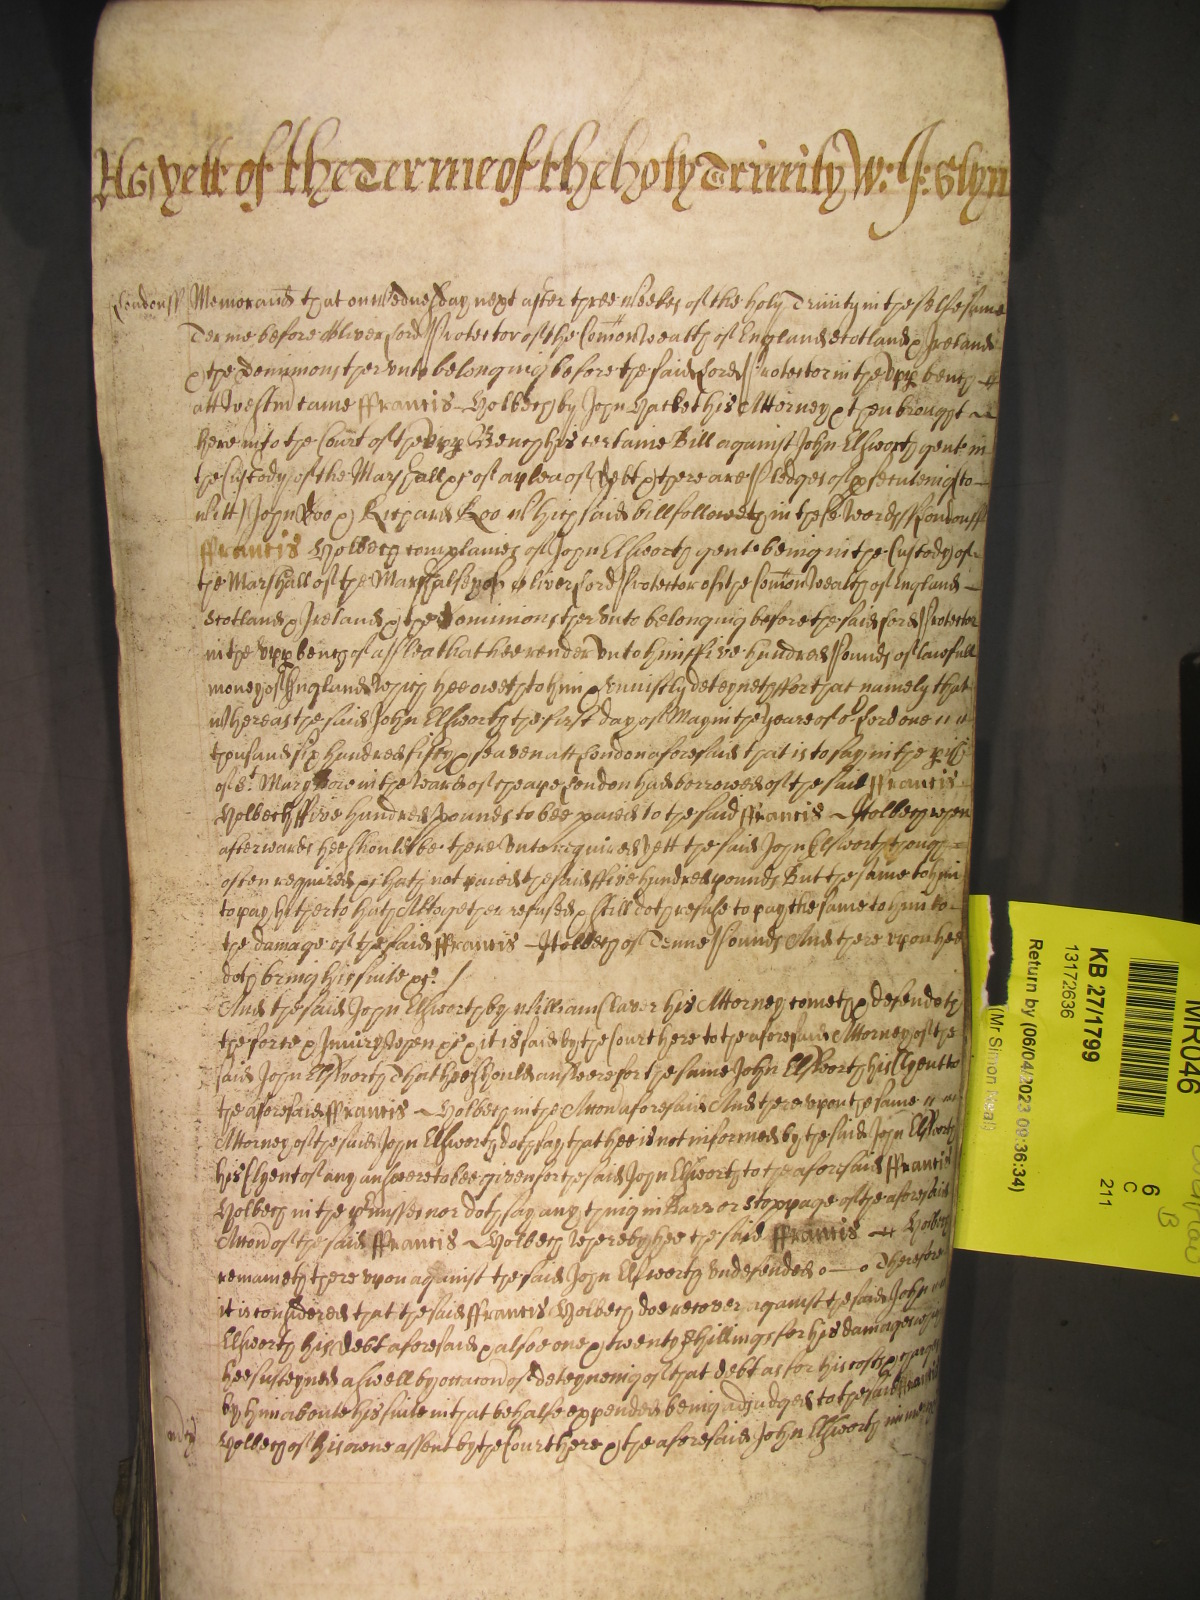 As yett of the Terme of the holy Trinity W: J: Glyn
London ss Memorand that on Wednesday next after three Weekes of the holy Trinity in the selfe same
Terme before Oliver Lord Protector of the Comon Wealth of England Scotland & Ireland
& the Dominions therunto belonging before the said Lord Protector in the upp bench
att Westm came ffrancis Holbech by John Hacket his Attorney & then brought
here into the Court of the upp Bench his certaine Bill against John Elsworth gent in
the Custody of the Marshall &c of a plea of Debt & there are Pledges of p'secuteing to
Witt John Doo & Richard Roo Which said bill followeth in these Words ss London ss
ffrancis Holbech complaines of John Elsworth gent being in the Custody of
the Marshall of the Marshalsey of Oliver Lord Protector of the Comon Wealth of England
Scotland & Ireland & the Dominions therunto belonging before the said Lord Protector
in the upp bench of a Plea that hee render unto him ffive hundred Pounds of lawfull
money of England Which hee oweth to him & uniustly deteyneth ffor that namely that
Whereas the said John Elsworth the first day of May in the yeare of o'r Lord one
thousand six hundred fifty & seaven att London aforesaid that is to say in the p'ish
of St Mary Bow in the Ward of Cheape London had borrowed of the said ffrancis
Holbech ffive hundred pounds to bee paied to the said ffrancis Holbech when
afterwards hee should be thereunto required Yett the said John Elsworth though
often required &c hath not paied the said ffive hundred pounds But the same to him
to pay hitherto hath Altogether refused & still doth refuse to pay the same to him to
the damage of the said ffrancis Holbech of Tenne Pounds And thereupon hee
doth bring his suite &c
And the said John Elsworth by William Claver his Attorney cometh & defendeth
the force & Iniury When &c & it is said by the Court here to the aforesaid Attorney of the
said John Elsworth That hee should answere for the same John Elsworth his Clyent to
the aforesaid ffrancis Holbech in the Accon aforesaid And thereupon the same
Attorney of the said John Elsworth doth say that hee is not informed by the said John Elsworth
his Clyent of any answere to bee given for the said John Elsworth to the aforesaid ffrancis
Holbech in the p'misses nor doth say any thing in Barr or stoppage of the aforesaid
Accon of the said ffrancis Holbech Whereby hee the said ffrancis Holbech
remaineth thereupon against the said John Elsworth undefended Therefore
it is considered that the said ffrancis Holbech doe recover against the said John
Elsworth his debt aforesaid & alsoe one & twenty shillings for his damages which
hee susteyned aswell by occacon of deteyneing of that debt as for his costs & charges
by him aboute his suite in that behalfe expended being adiudged to the said ffrancis
Holbech of his owne assent by the Court here & the aforesaid John Elsworth in mercy
MR046
KB 27/1799
13172636
Return by (06/04/2023 09:36:34)
(Mr Simon Neal)
6
C
211
B